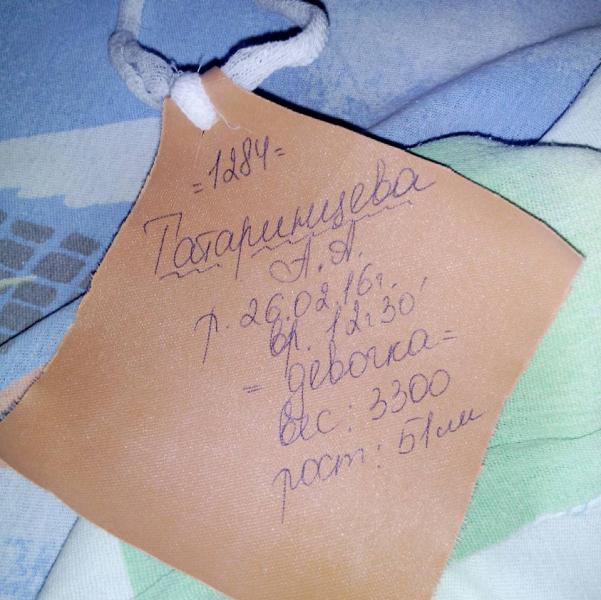 =1284=
Татаринцева
А.А.
р. 26.02.16г.
вр. 12ч30'
= девочка=
вес: 3300
рост: 51см